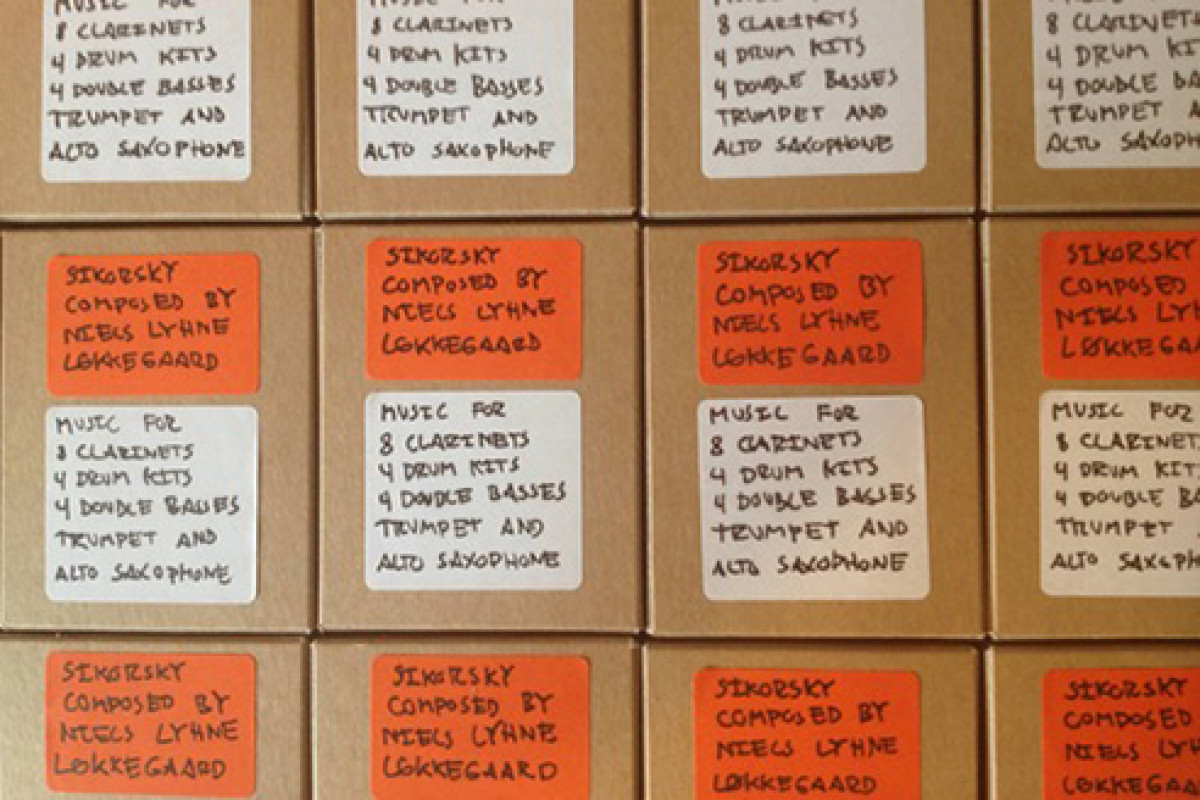 MUSIC FOR
8 CLARINETS
4 DRUM KITS
4 DOUBLE BASSES
TRUMPET AND
ALTO SAXOPHONE
MUSIC FOR
8 CLARINETS
4 DRUM KITS
4 DOUBLE BASSES
TRUMPET AND
ALTO SAXOPHONE
8 CLARINETS
4 DRUM KITS
4 DOUBLE BASSES
TRUMPET AND
ALTO SAXOPHONE
8 CLARINETS
4 DRUM KITS
4 DOUBLE BA
TRUMPET A
ALTO SAXOPH
SIKORSKY
COMPOSED BY
NIELS LYHNE
LØKKEGAARD
MUSIC FOR
8 CLARINETS
4 DRUM KITS
4 DOUBLE BASSES
TRUMPET AND
ALTO SAXOPHONE
SIKORSKY
COMPOSED BY
NIELS LYHNE
LØKKEGAARD
MUSIC FOR
8 CLARINETS
4 DRUM KITS
4 DOUBLE BASSES
TRUMPET AND
ALTO SAXOPHONE
SIKORSKY
COMPOSED BY
NIELS LYHNE
LØKKEGAARD
MUSIC FOR
8 CLARINETS
4 DRUM KITS
4 DOUBLE BASSES
TRUMPET AND
ALTO SAXOPHONE
SIKORSKY
COMPOSED
NIELS LY
LØKKEGAA
MUSIC FOR
8 CLARINET
4 DRUM KIT
4 DOUBLE B
TRUMPET
ALTO SAXOPH
SIKORSKY
COMPOSED BY
NIELS LYHNE
LØKKEGAARD
SIKORSKY
COMPOSED BY
NIELS LYHNE
LØKKEGAARD
SIKORSKY
COMPOSED BY
NIELS LYHNE
LØKKEGAARD
SIKORSKY
COMPOSED
NIELS LYH
LØKKEGAA